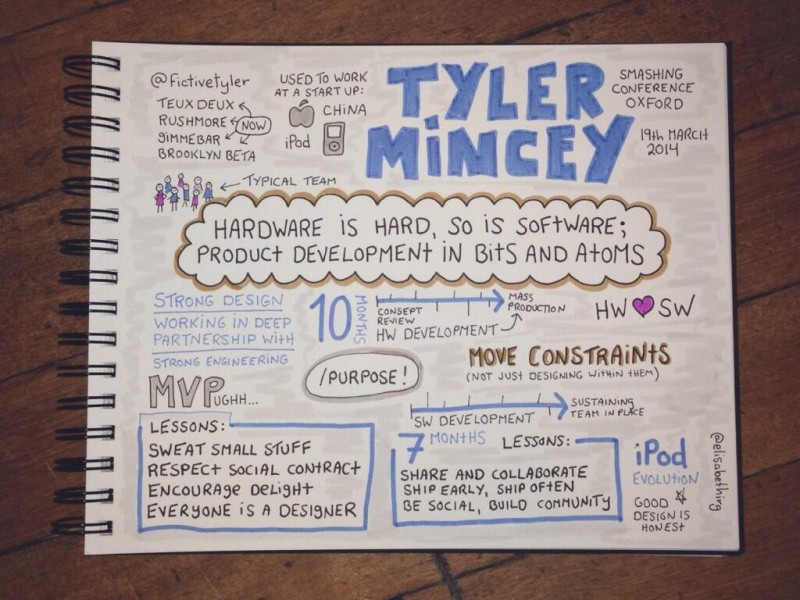 @Fictivetyler
TEUX DEUX
RUSHMORE
GIMMEBAR
BROOKLYN BETA
NOW
USED TO WORK
AT A START UP:
CHINA
iPod
TYLER
MINCEY
SMASHING
CONFERENCE
OXFORD
19th MARCH
2014
TYPICAL TEAM
HARDWARE IS HARD, SO IS SOFTWARE;
PRODUCT DEVELOPMENT IN BITS AND ATOMS
STRONG DESIGN
WORKING IN DEEP
PARTNERSHIP WITH
STRONG ENGINEERING
10 MONTHS
CONSEPT
REVIEW
MASS
PRODUCTION
HW DEVELOPMENT
HW SW
MVP UGHH...
/PURPOSE!
MOVE CONSTRAINTS
(NOT JUST DESIGNING WITHIN THEM)
SW DEVELOPMENT
SUSTAINING
TEAM IN PLACE
LESSONS:
SWEAT SMALL STUFF
RESPECT SOCIAL CONTRACT
ENCOURAGE DELIGHT
EVERYONE IS A DESIGNER
7 MONTHS
LESSONS:
SHARE AND COLLABORATE
SHIP EARLY, SHIP OFTEN
BE SOCIAL, BUILD COMMUNITY
iPod
EVOLUTION
GOOD
DESIGN IS
HONEST
@elisabethirg